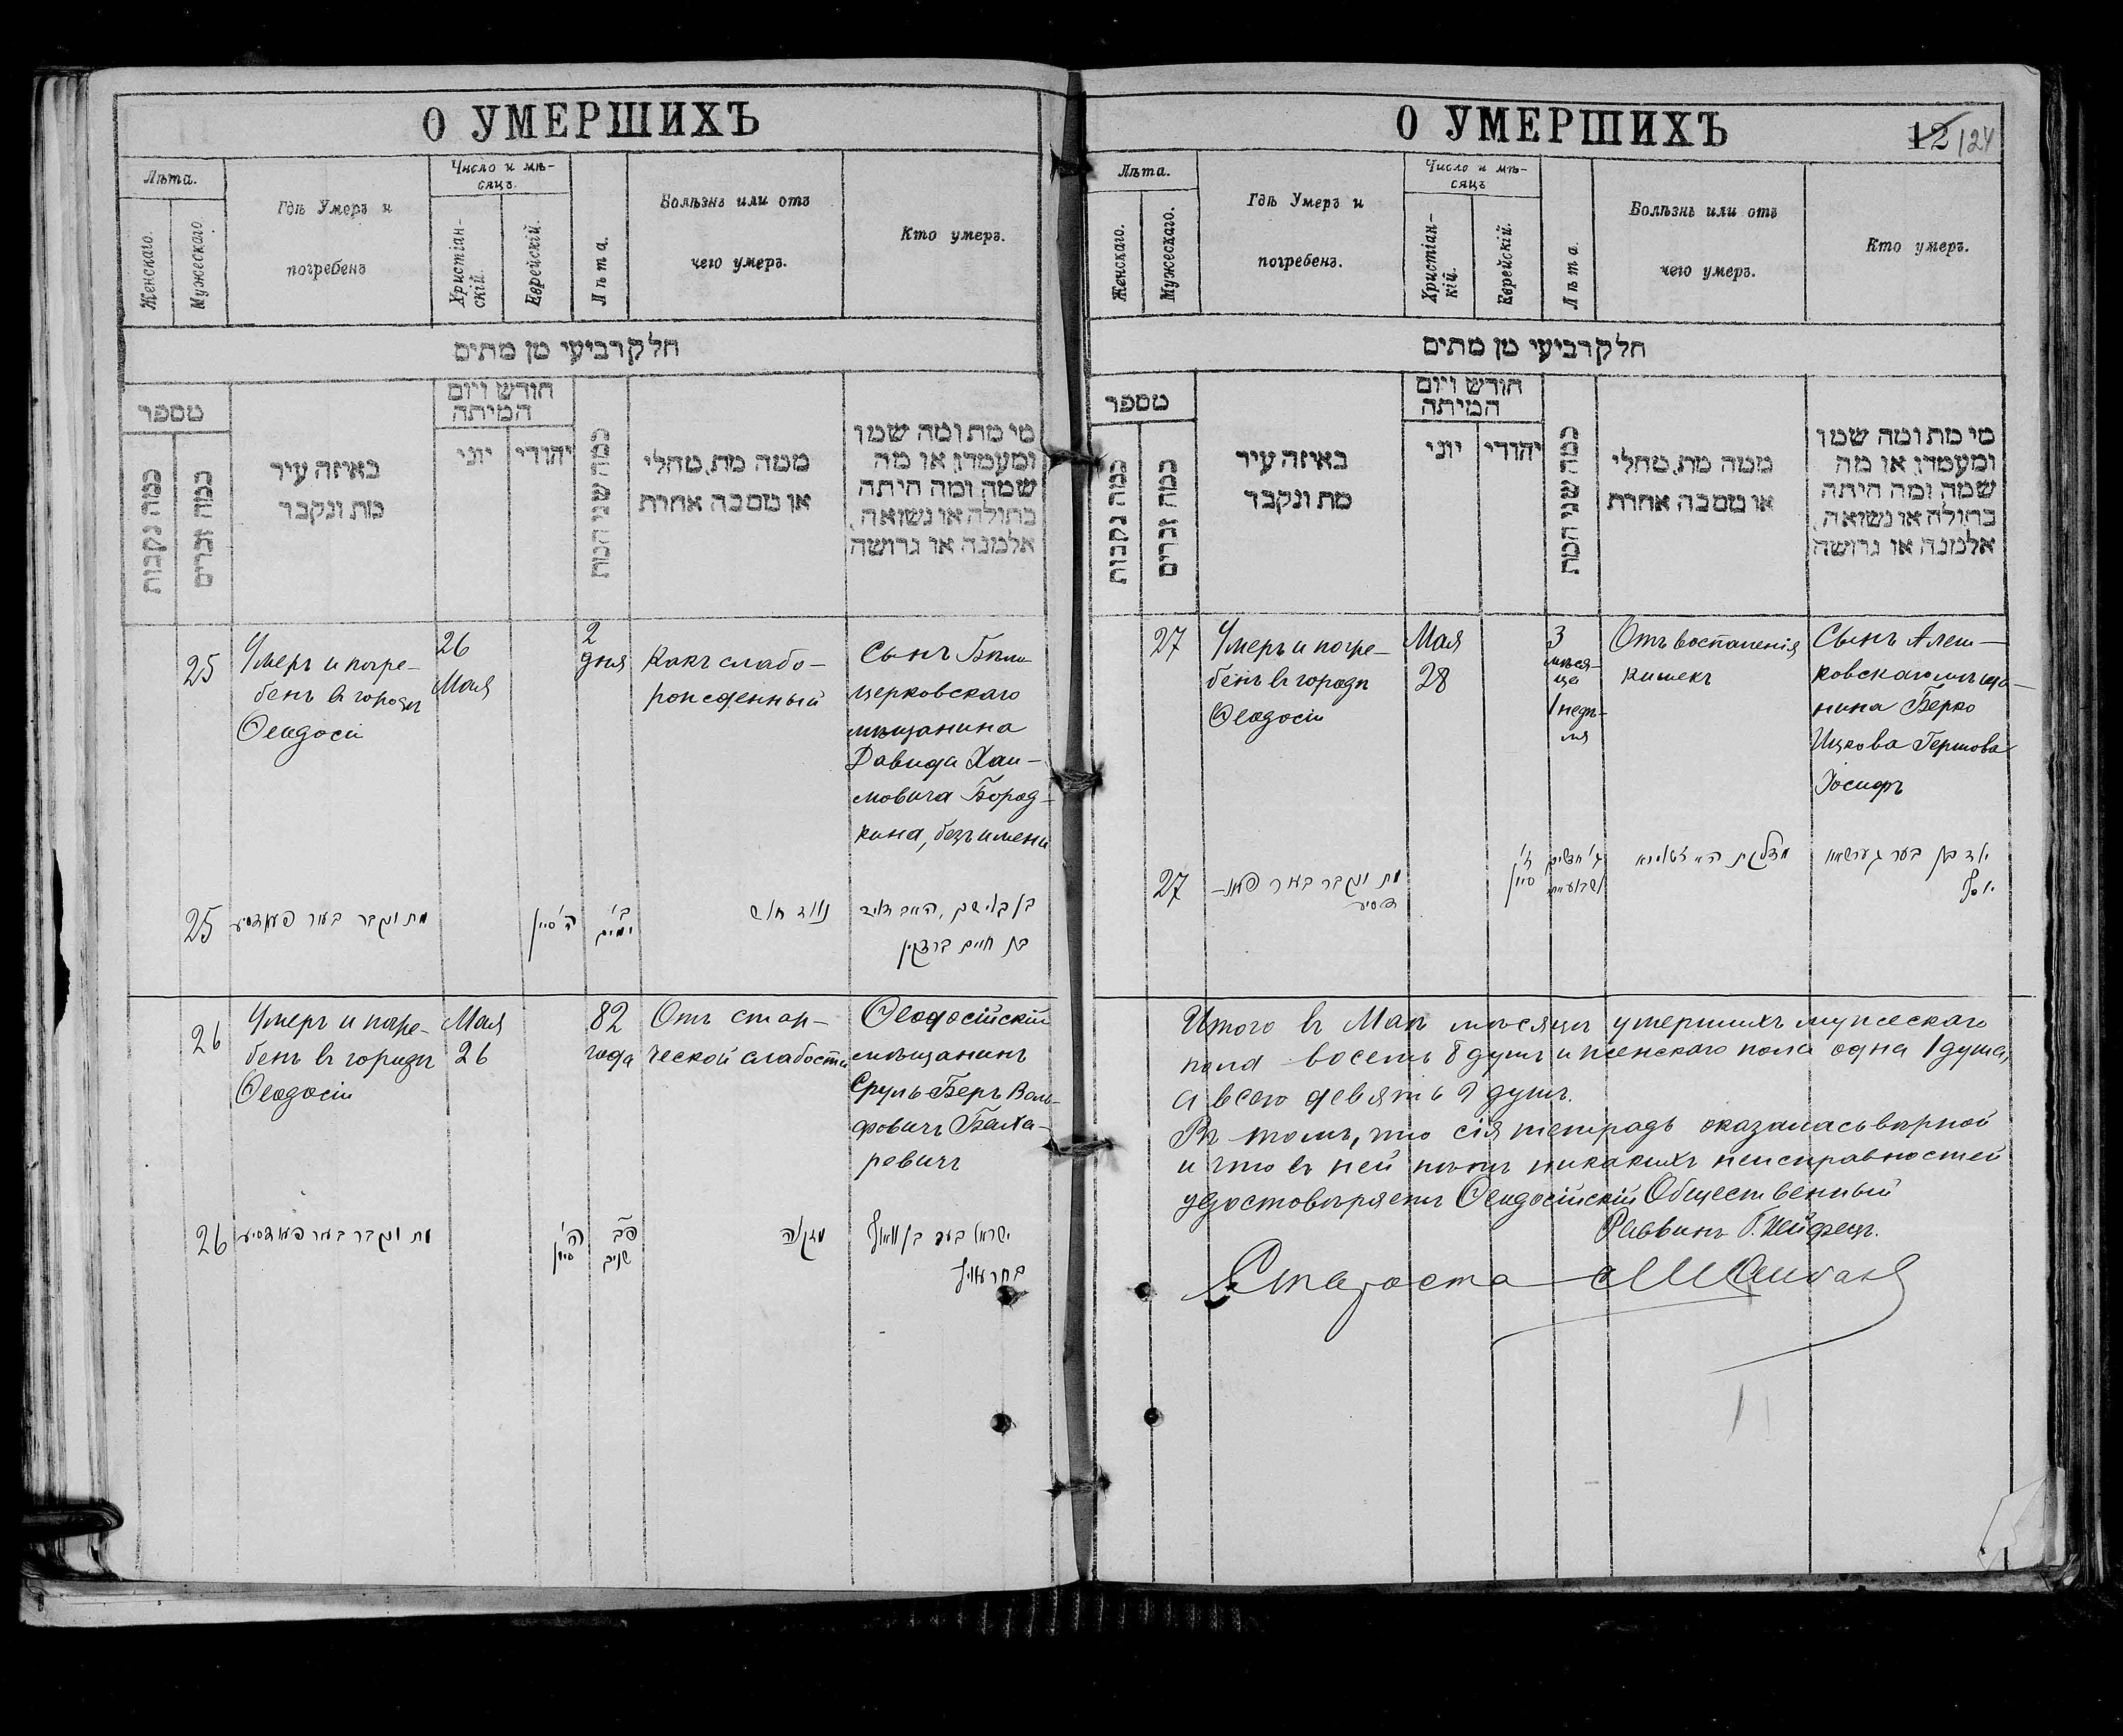 О УМЕРШИХЪ
Лѣта.
Женскаго.
Мужескаго.
Гдѣ Умеръ и
погребенъ
Число и мѣ-
сяцъ.
Христіан-
скій.
Еврейскій.
Лѣта.
Болѣзнь или отъ
чего умеръ.
Кто умеръ.
חלק רביעי מן מתים
מספר
כמה נקבות
כמה זכרים
באיזה עיר
מת ונקבר
חודש ויום
המיתה
יוני
יהודי
כמה שני המת
ממה מת, מחלי
או מסבה אחרת
מי מת ומה שמו
ומעמדו, או מה
שמה, ומה היתה
בתולה או נשואה,
אלמנה או גרושה
25
Умеръ и погре-
бенъ въ городѣ
Ѳеодосіи
26
Мая
2
дня
Какъ слабо-
рожденный
Сынъ Бѣло-
церковскаго
мѣщанина
Давида Хаи-
мовича Бород-
кина, безъ имени
25
מת ונקבר בעיר פעאדסיע
ה' סיון
ב'
ימים
נולד חלש
בן חיים ברדקין
26
Умеръ и погре-
бенъ въ городѣ
Ѳеодосіи
Мая
26
82
года
Отъ стар-
ческой слабости
Ѳеодосійскій
мѣщанинъ
Сруль-Беръ Воль-
фовичъ Баха-
ревичъ
26
מת ונקבר בעיר פעאדסיע
ה'
סיון
פ"ב
שנים
מזקנה
ישראל בער בן וואלף
О УМЕРШИХЪ
12 124
Лѣта.
Женскаго.
Мужескаго.
Гдѣ Умеръ и
погребенъ.
Число и мѣ-
сяцъ
Христіан-
кій.
Еврейскій.
Лѣта.
Болѣзнь или отъ
чего умеръ.
Кто умеръ.
חלק רביעי מן מתים
מספר
כמה נקבות
כמה זכרים
באיזה עיר
מת ונקבר
חודש ויום
המיתה
יוני
יהודי
כמה שני המת
ממה מת, מחלי
או מסבה אחרת
מי מת ומה שמו
ומעמדו, או מה
שמה, ומה היתה
בתולה או נשואה,
אלמנה או גרושה
27
Умеръ и погре-
бенъ въ городѣ
Ѳеодосіи
Мая
28
3
мѣся-
ца
1 недѣ-
ля
Отъ воспаленія
кишекъ
Сынъ Алеш-
ковскаго мѣща-
нина Берко
Ицкова Гершова
Іосифъ
27
מת ונקבר בעיר פעא-
דסיע
ז'
סיון
ג' חדשים
ילד בן בער גערשאוו
יוסף
Итого въ Маѣ мѣсяцѣ умершихъ мужескаго
пола восемь 8 душъ и женскаго пола одна 1 душа,
а всего девять 9 душъ.
Въ томъ, что сія тетрадь оказалась вѣрной
и что въ ней нѣтъ никакихъ неисправностей
удостовѣряетъ Ѳеодосійскій Общественный
Раввинъ Б. Хейфецъ.
Староста